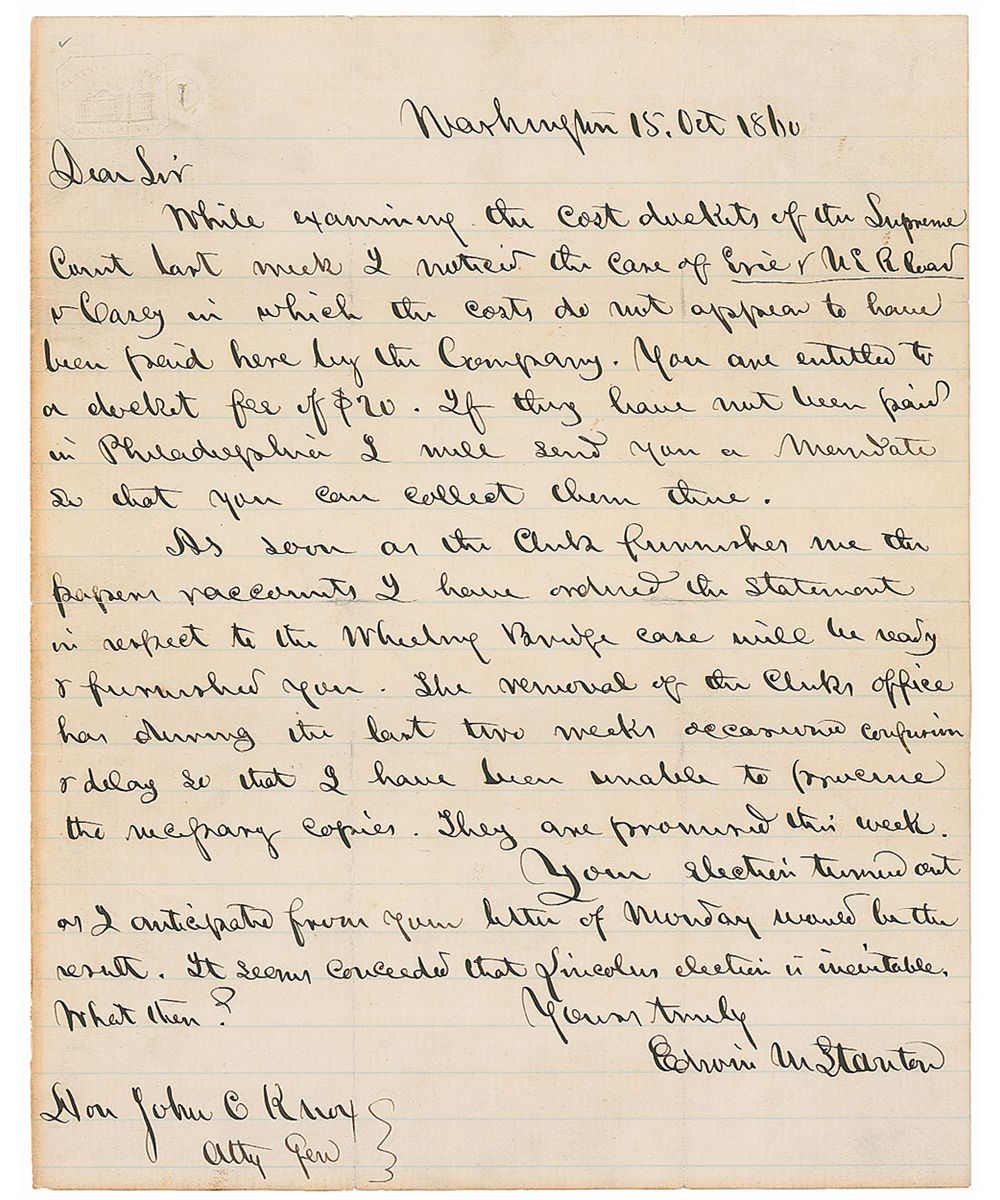 CONGRESS
Washington 15. Oct 1860
Dear Sir
While examining the cost dockets of the Supreme
Court last week I noticed the case of Erie & NE R Road
v Casey in which the costs do not appear to have
been paid here by the Company. You are entitled to
a docket fee of $20. If they have not been paid
in Philadelphia I will send you a Mandate
so that you can collect them there.
As soon as the Clerk furnishes me the
papers & accounts I have ordered the statement
in respect to the Wheeling Bridge case will be ready
& furnished you. The removal of the Clerks office
has during the last two weeks occasioned confusion
& delay so that I have been unable to procure
the necessary copies. They are promised this week.
Your election turned out
as I anticipated from your letter of Monday would be the
result. It seems conceded that Lincolns election is inevitable.
What then?
Yours truly
Edwin M Stanton
Hon John C Knox
Atty Gen